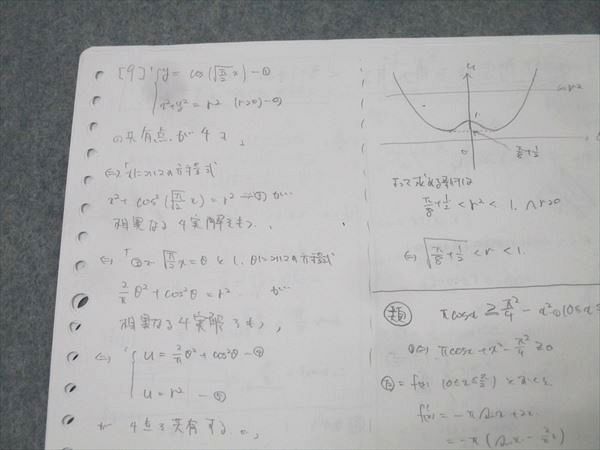 [9] y = cos(√(π/2) x) ―①
x²+y² = r² (r>0) ―②
の共有点が 4コ、
⇔「xについての方程式
x² + cos²(√(π/2) x) = r² ―③ が
相異なる4実解をもつ、
⇔「③で √(π/2) x = θ とし、θについての方程式
2/π θ² + cos²θ = r² が
相異なる4実解をもつ、
⇔ u = 2/π θ² + cos²θ ―④
u = r² ―⑤
が 4点を共有する。
u
u=r²
1
0
π/8 + 1/2
よって求める条件は
π/8 + 1/2 < r² < 1, ∧ r>0
⇔ √(π/8 + 1/2) < r < 1.
類 π cos x ≧ π²/4 - x²
①⇔ π cos x + x² - π²/4 ≧ 0
= f(x) (0≦x≦π/2) とおくと
f'(x) = -π sin x + 2x
= -π (sin x - 2/π x)